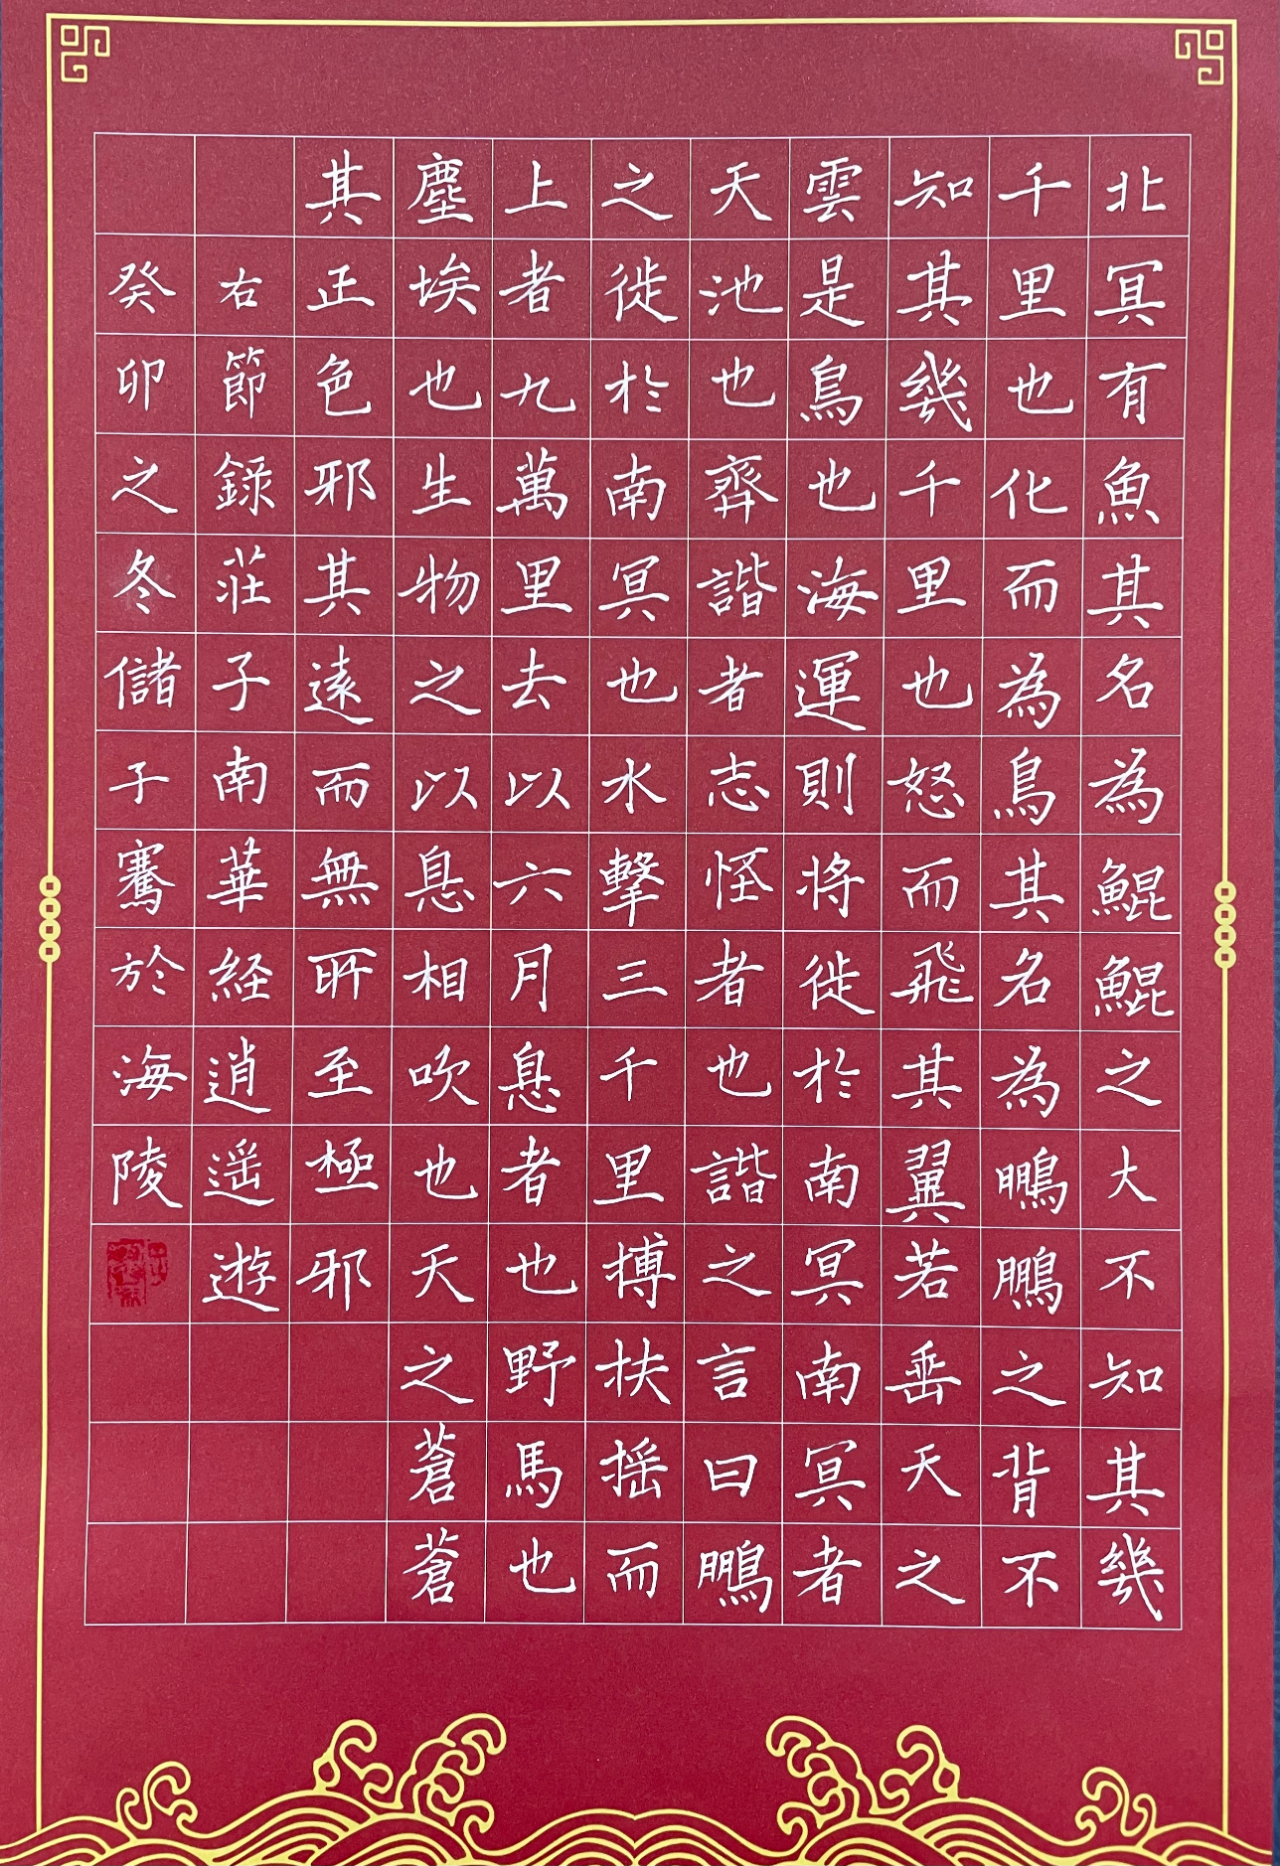 北冥有魚其名為鯤鯤之大不知其幾
千里也化而為鳥其名為鵬鵬之背不
知其幾千里也怒而飛其翼若垂天之
雲是鳥也海運則將徙於南冥南冥者
天池也齊諧者志怪者也諧之言曰鵬
之徙於南冥也水擊三千里搏扶摇而
上者九萬里去以六月息者也野馬也
塵埃也生物之以息相吹也天之蒼蒼
其正色邪其遠而無所至極邪
右節錄莊子南華経逍遥遊
癸卯之冬儲子騫於海陵